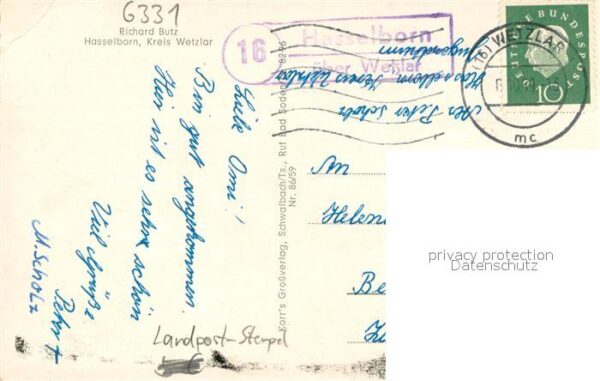 6331
Richard Butz
Hasselborn, Kreis Wetzlar
16
Hasselborn
über Wetzlar
(16) WETZLAR
mc
DEUTSCHE BUNDESPOST
10
Abs. Peter Scholz
Hasselborn Kreis Wetzlar
Jugendheim
Liebe Omi!
Bin gut angekommen.
Hier ist es sehr schön
Viel Grüße
Peter +
M. Scholz
Korr's Großverlag, Schwalbach/Ts., Ruf Bad Soden 8296
Nr. 86/59
An
Helen
Be
Landpost-Stempel
privacy protection
Datenschutz